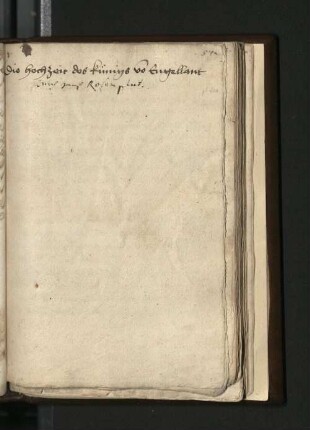 Die hochzeit des künigs vō Engellant
Rosenplut.